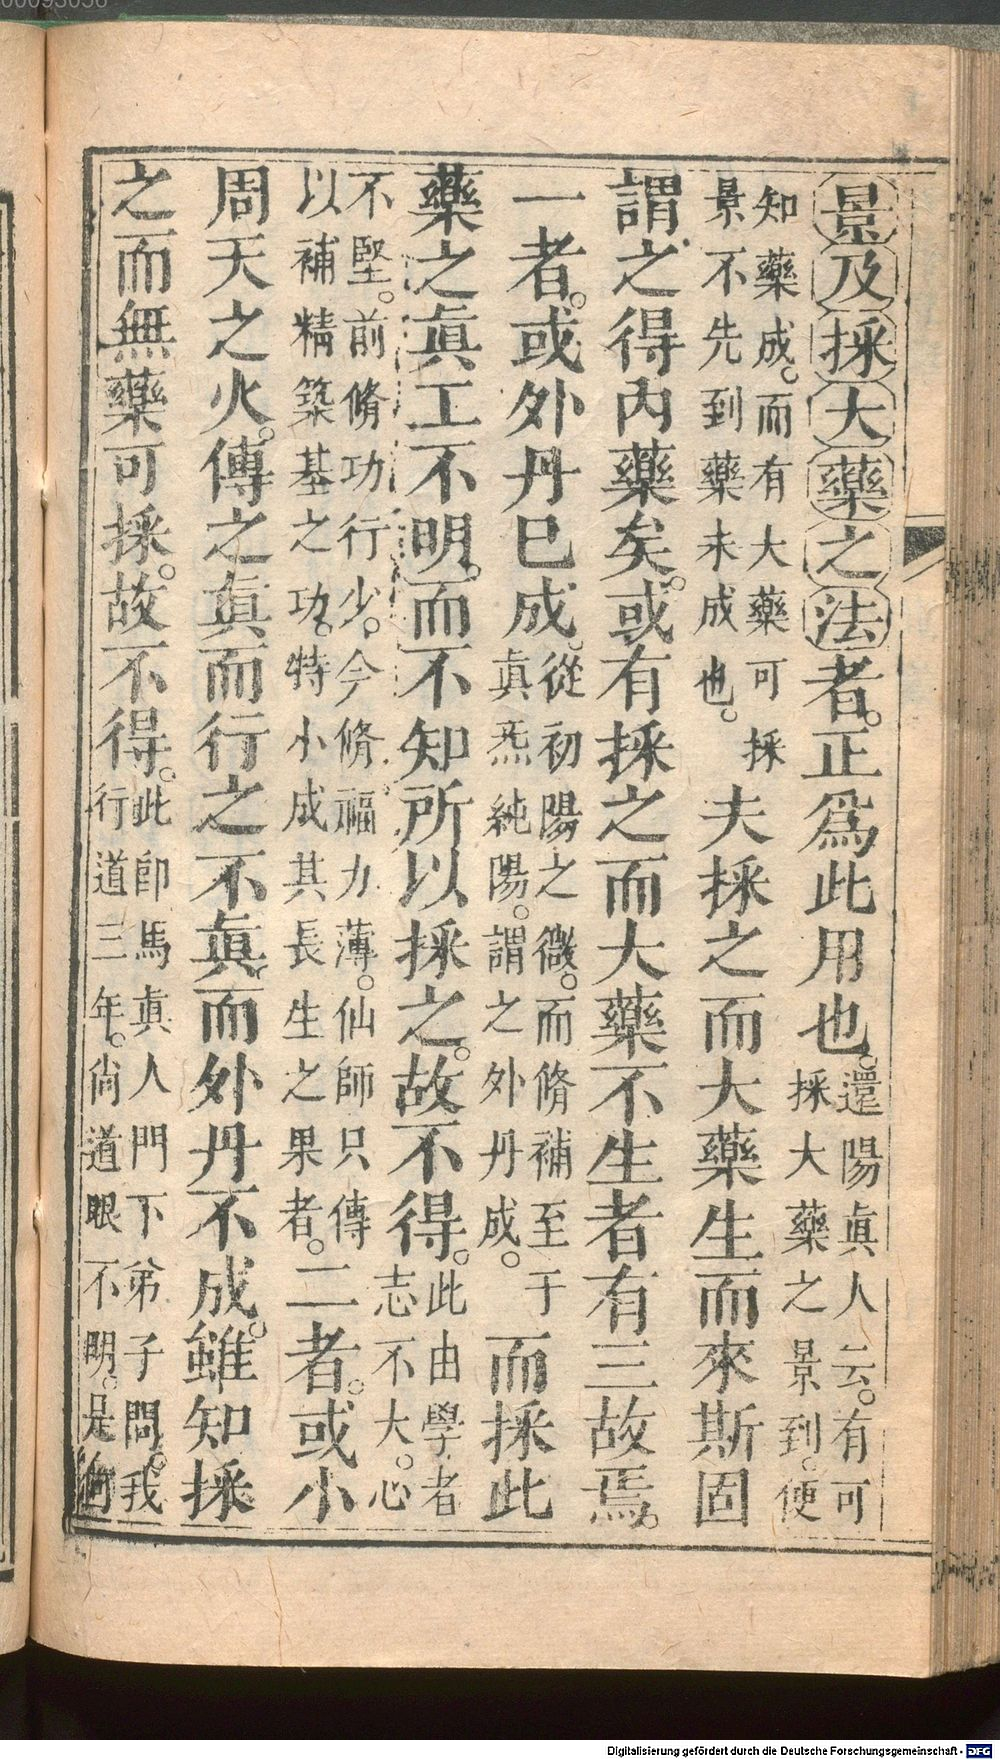 00093056
景及採大藥之法者。正爲此用也。還陽眞人云。有可
採大藥之景到。便
知藥成。而有大藥可採
景不先到藥未成也。夫採之而大藥生而來斯固
謂之得內藥矣。或有採之而大藥不生者有三故焉。
一者。或外丹已成。從初陽之微。而脩補至于
眞炁純陽。謂之外丹成。而採此
藥之眞工不明。而不知所以採之。故不得。此由學者
志不大。心
不堅。前脩功行少。今脩福力薄。仙師只傳
以補精築基之功。特小成其長生之果者。二者。或小
周天之火。傳之眞而行之不眞。而外丹不成。雖知採
之而無藥可採。故不得。此卽馬眞人門下弟子問。我
行道三年。尙道眼不明。是何
Digitalisierung gefördert durch die Deutsche Forschungsgemeinschaft - DFG